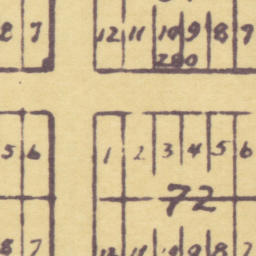 8 7 12 11 10 9 8 7
280
5 6 1 2 3 4 5 6
72
8 7 12 11 10 9 8 7